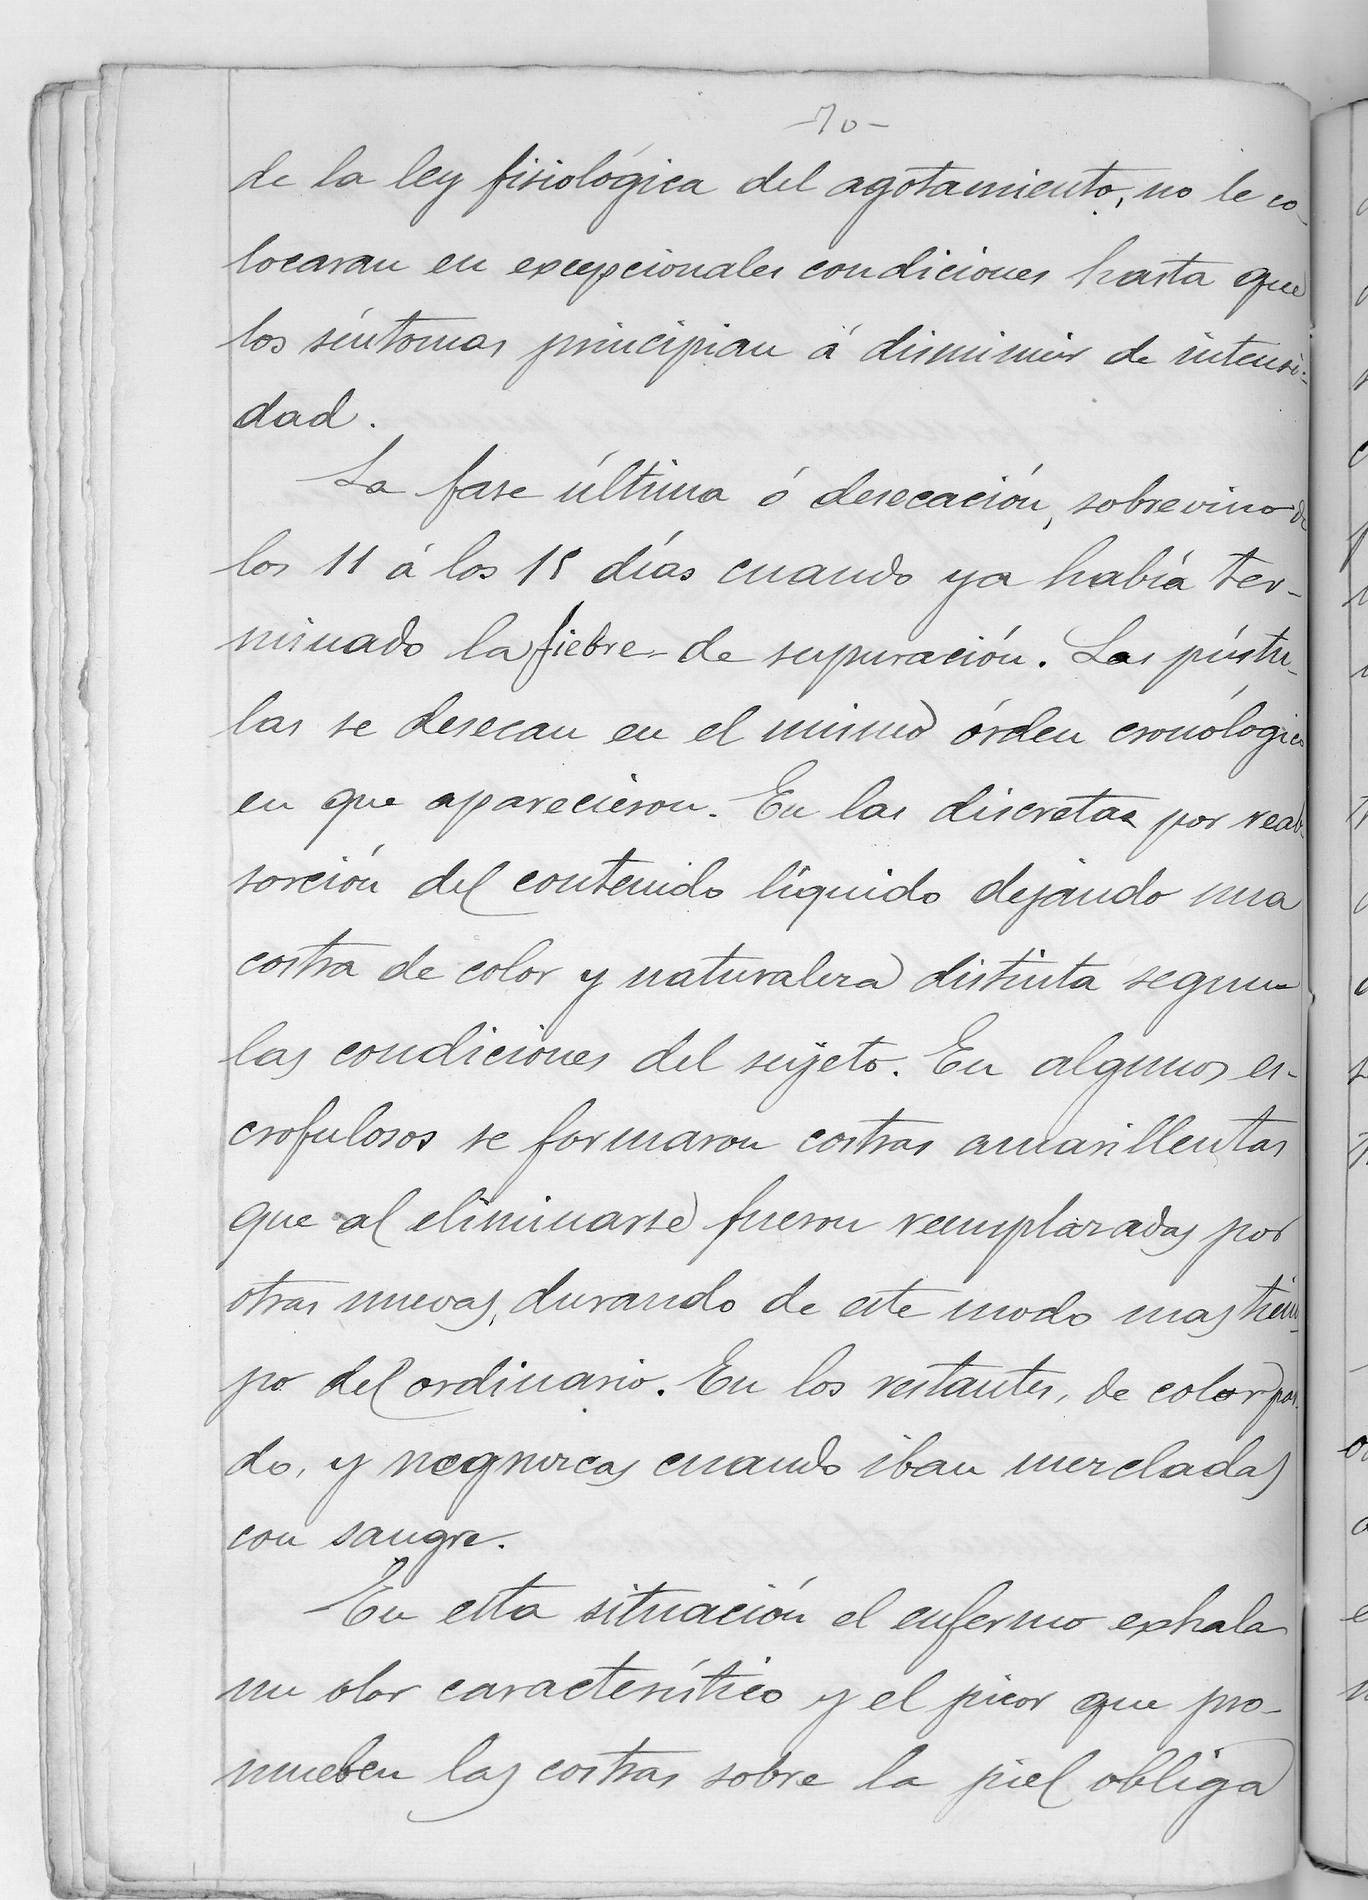 -70-
de la ley fisiológica del agotamiento, no le co-
locaran en excepcionales condiciones hasta que
los síntomas principian á disminuir de intensi-
dad.
La fase última ó desecación, sobrevino de
los 11 á los 15 días cuando ya había ter-
minado la fiebre de supuración. Las pústu-
las se desecan en el mismo órden cronológico
en que aparecieron. En las discretas por reab-
sorción del contenido líquido dejando una
costra de color y naturaleza distinta segun
las condiciones del sujeto. En algunos es-
crofulosos se formaron costras amarillentas
que al eliminarse fueron reemplazadas por
otras nuevas, durando de este modo mas tiem-
po del ordinario. En los restantes, de color par-
do, y negruzcas cuando iban mezcladas
con sangre.
En esta situación el enfermo exhala
un olor característico y el picor que pro-
mueben las costras sobre la piel obliga